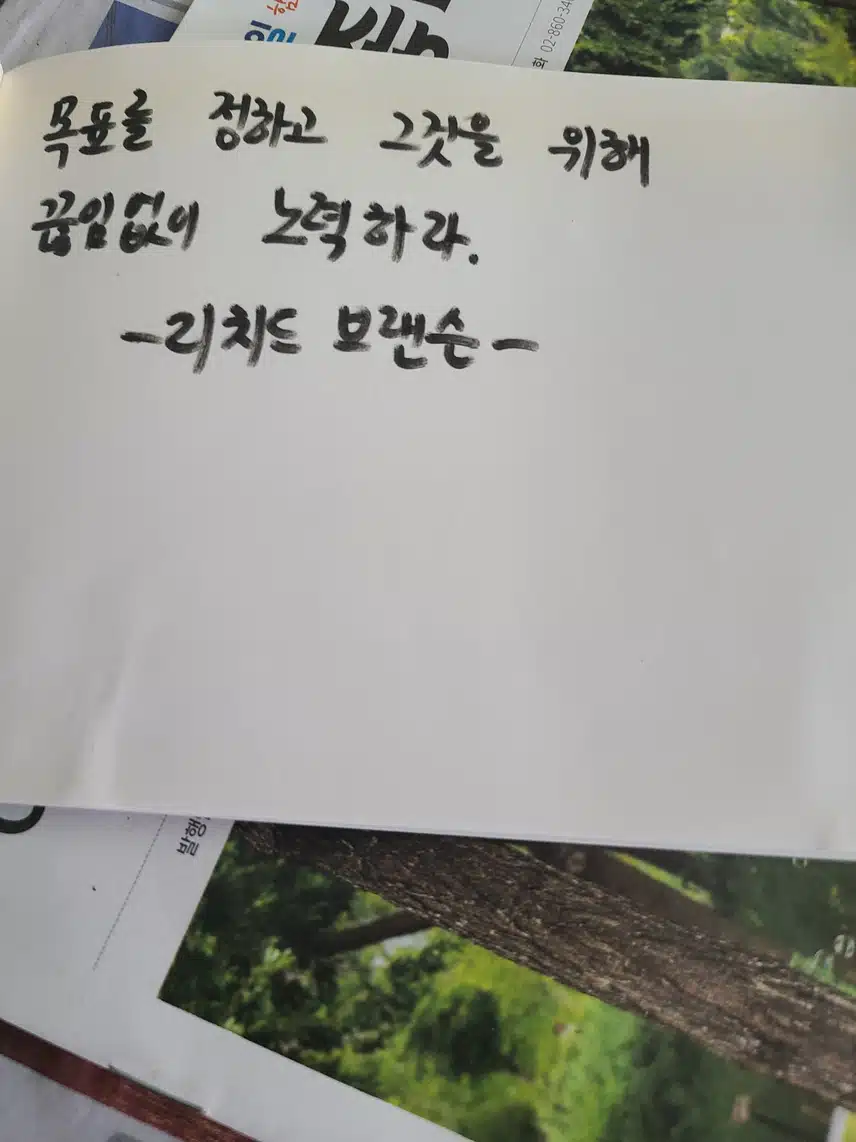 화 02-860-34
목표를 정하고 그것을 위해
끊임없이 노력하라.
-리치드 브랜슨-
발행